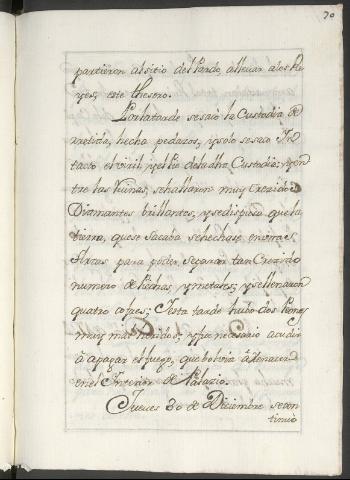 70
partieron al sitio del Pardo, allevar alos Re
yes, este thesoro.
Por la tarde se sacò la Custodia de
rretida, hecha pedazos, y solo se sacò In
tacto el viril, y el Pie de la dha Custodia; y en
tre las Ruinas, se hallaron muy Crezidos
Diamantes brillantes, y se dispuso que la
tierra, que se sacaba se hechase en
para poder, separar tan Crezido
numero de Piedras, y metales; y se llenaron
quatro cofres; Esta tarde hubo dos Peones
muy mal heridos, y fue necesario acudir
à apagar el fuego, que bolvia à
en el Interior de Palacio.
Jueves 30 de Diciembre se con
tinuò